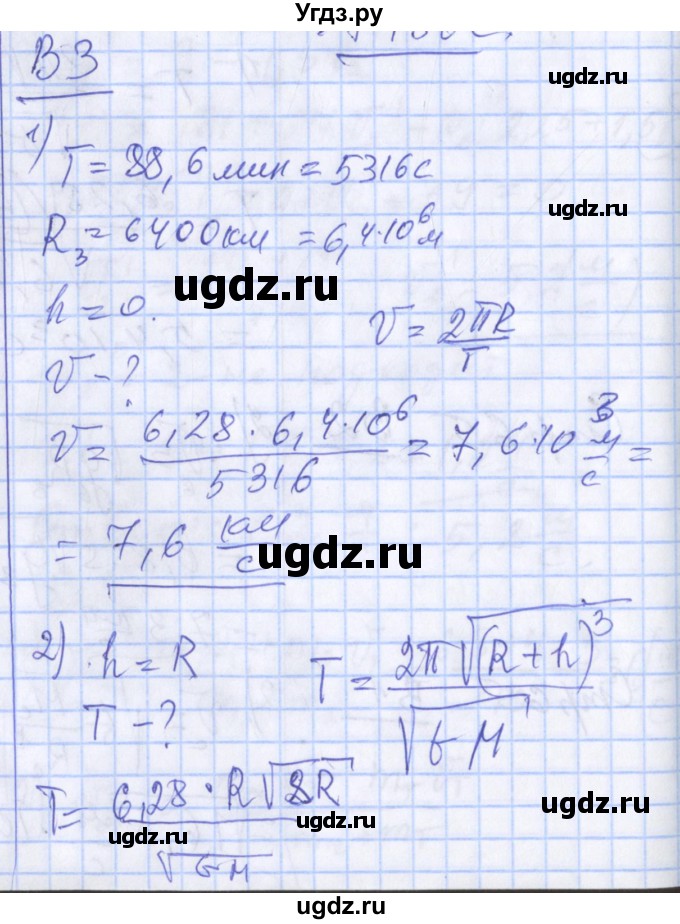 Угдз.ру
В3
ugdz.ru
1) T = 88,6 мин = 5316 с
R₃ = 6400 км = 6,4·10⁶ м
ugdz.ru
ugdz.ru
h = 0.
V = 2πR/T
V - ?
V = 6,28 · 6,4·10⁶ / 5316 = 7,6·10³ м/с =
= 7,6 км/с
ugdz.ru
2) h = R
T = 2π√(R+h)³ / √GM
T - ?
T = 6,28 · R√8R / √GM
ugdz.ru
ugdz.ru
ugdz.ru
ugdz.ru
ugdz.ru